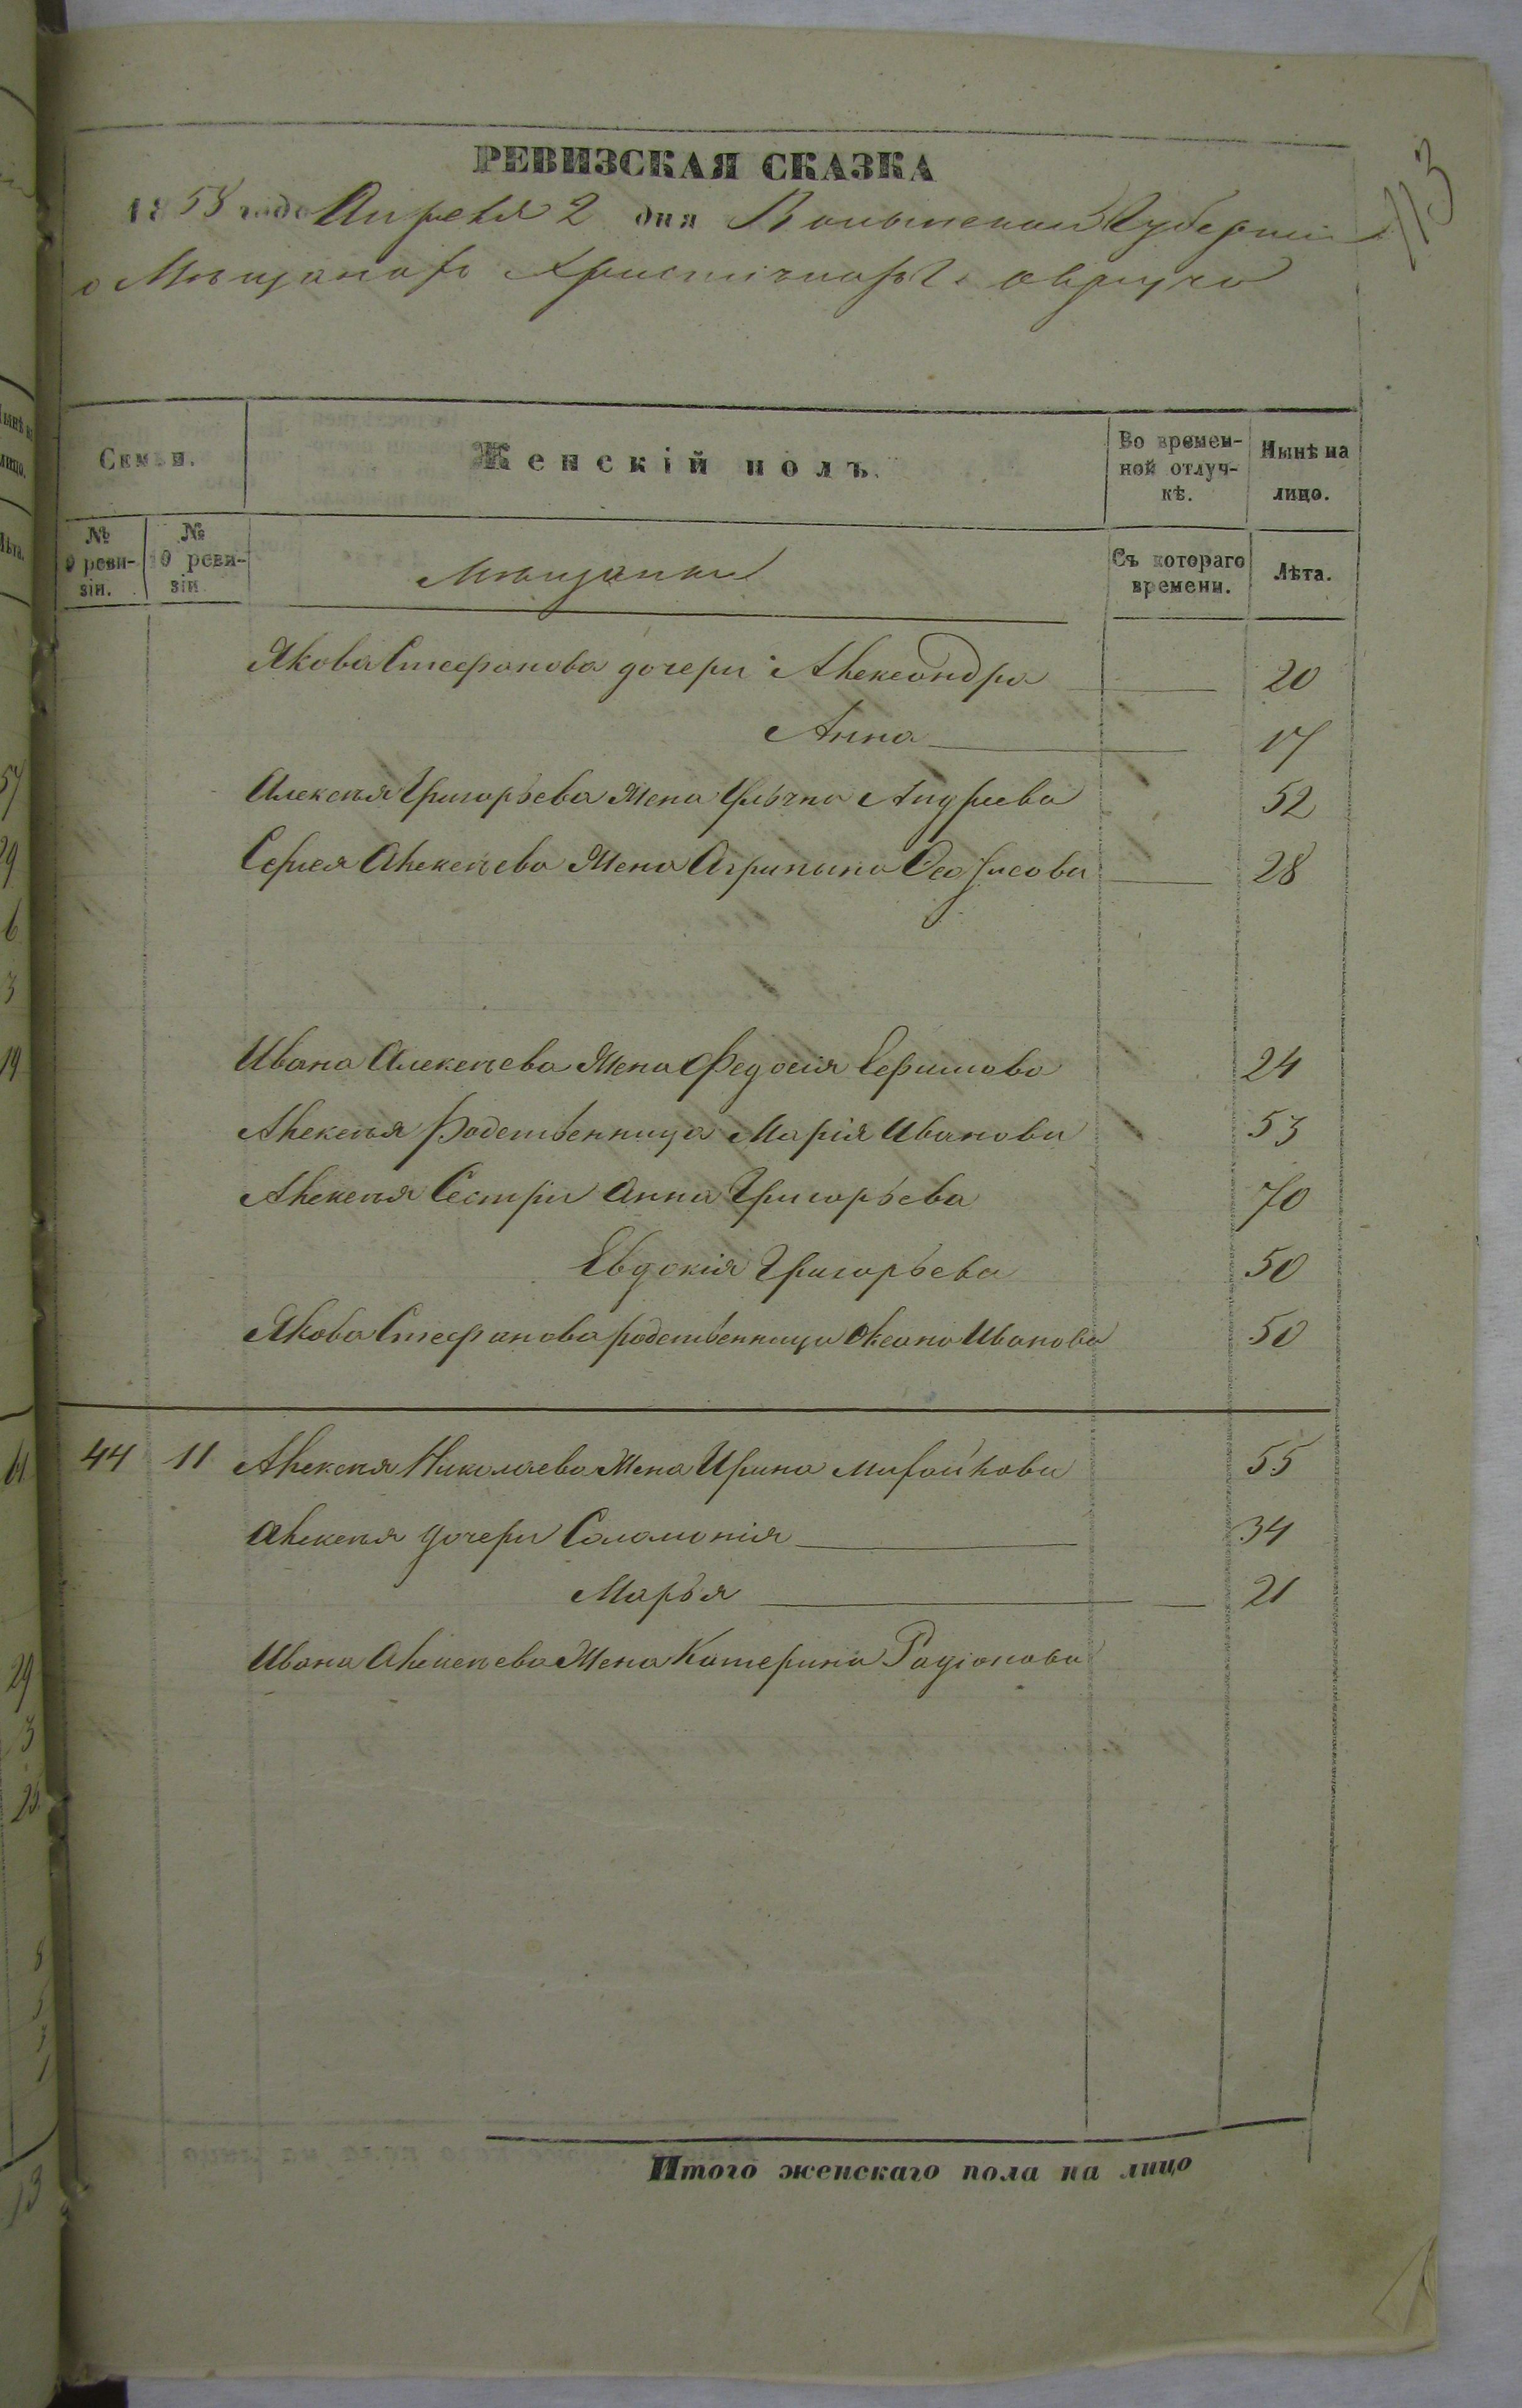 113
РЕВИЗСКАЯ СКАЗКА
1858 года Апреля 2 дня Волынской Губернии
о Мѣщанахъ Христіянахъ г. Овруча
Семьи.
Женскій полъ.
Во времен-
ной отлуч-
кѣ.
Нынѣ на
лицо.
№
9 реви-
зіи.
№
10 реви-
зіи
Мѣщанки
Съ котораго
времени.
Лѣта.
Якова Стефанова дочери Александра 20
Анна 17
Алексѣя Григорьева Жена Андреева 52
Сергея Алексѣева Жена Агрипына 28
Ивана Алексѣева Жена Федосія Ефимова 24
Алексѣя Родственница Марія Иванова 53
Алексѣя Сестры Анна Григорьева 70
Евдокія Григорьева 50
Якова Стефанова родственница Оксана Иванова 50
44 11 Алексѣя Николаева Жена Ирина Михайлова 55
Алексѣя дочери Соломонія 34
Марья 21
Ивана Алексѣева Жена Катерина Радіонова
Итого женскаго пола на лицо